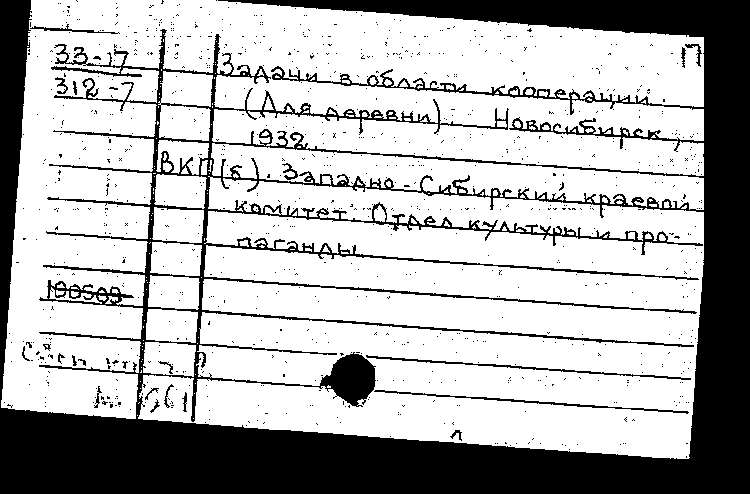 П
33-17
312-7
Задачи в области кооперации.
(Для деревни). Новосибирск,
1932.
ВКП(б). Западно-Сибирский краевой
комитет. Отдел культуры и про-
паганды.
190509
л